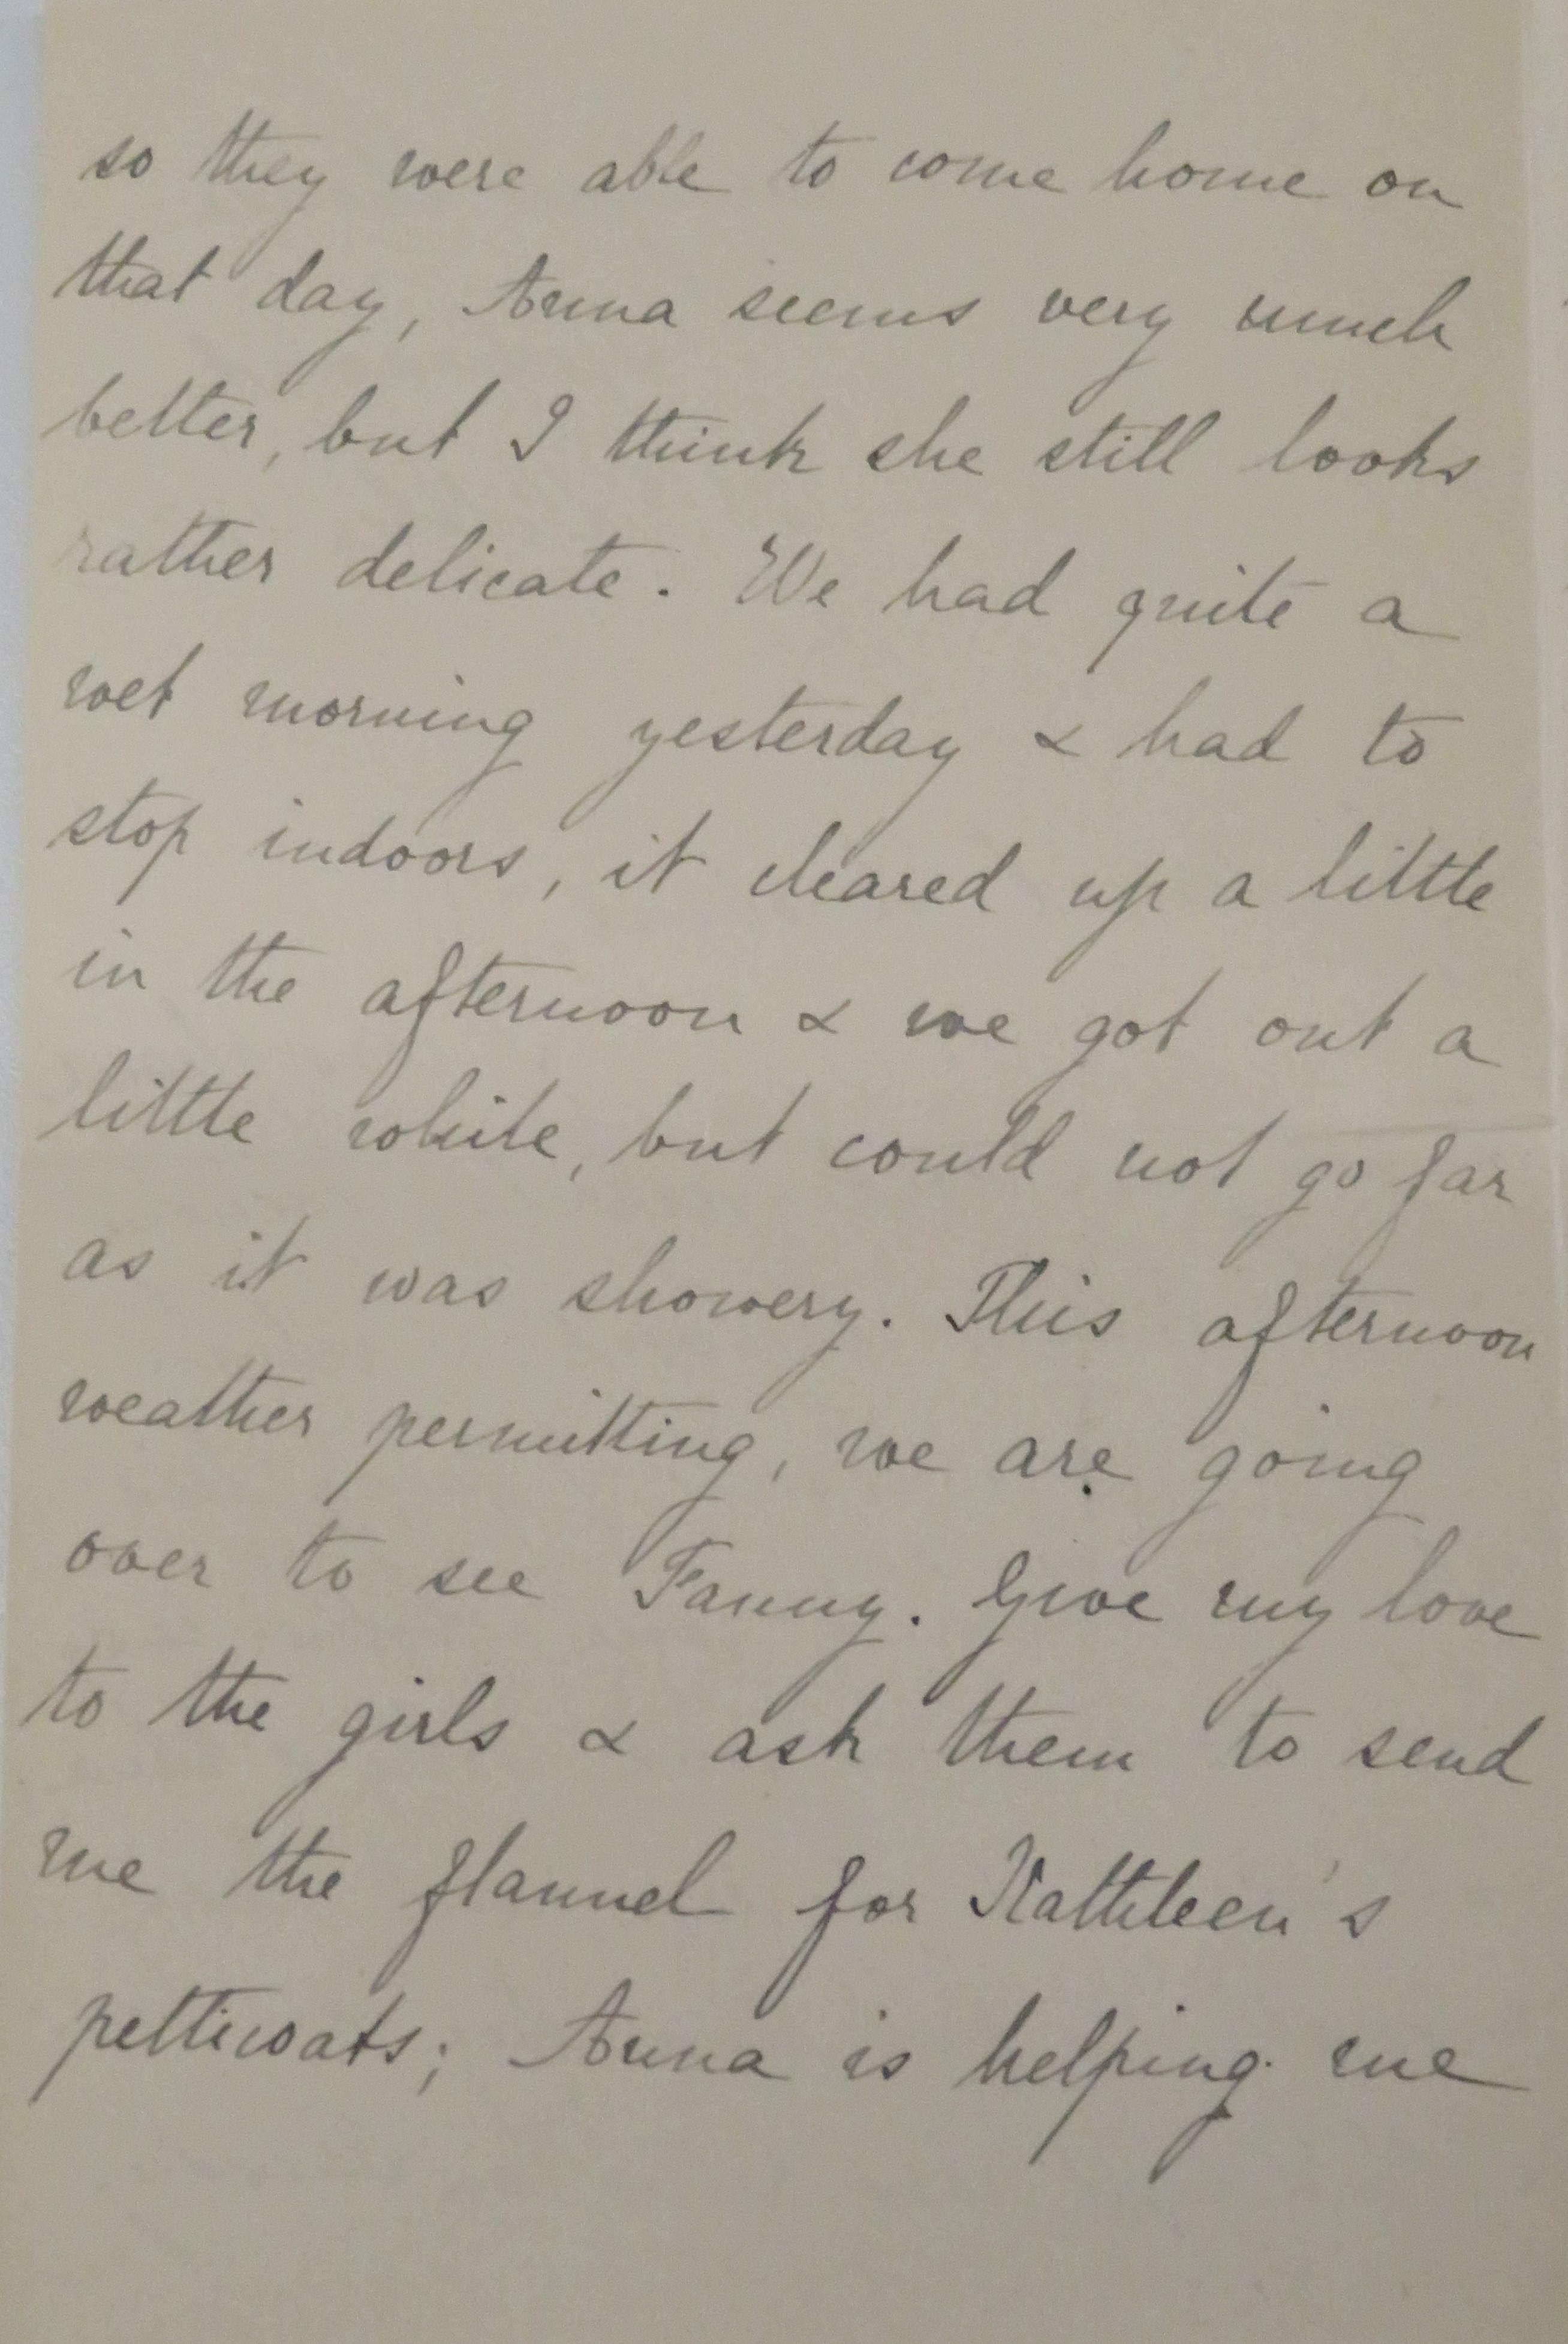 so they were able to come home on
that day, Anna seems very much
better, but I think she still looks
rather delicate. We had quite a
wet morning yesterday & had to
stop indoors, it cleared up a little
in the afternoon & we got out a
little while, but could not go far
as it was showery. This afternoon
weather permitting, we are going
over to see Fanny. Give my love
to the girls & ask them to send
me the flannel for Kathleen's
petticoats; Anna is helping me